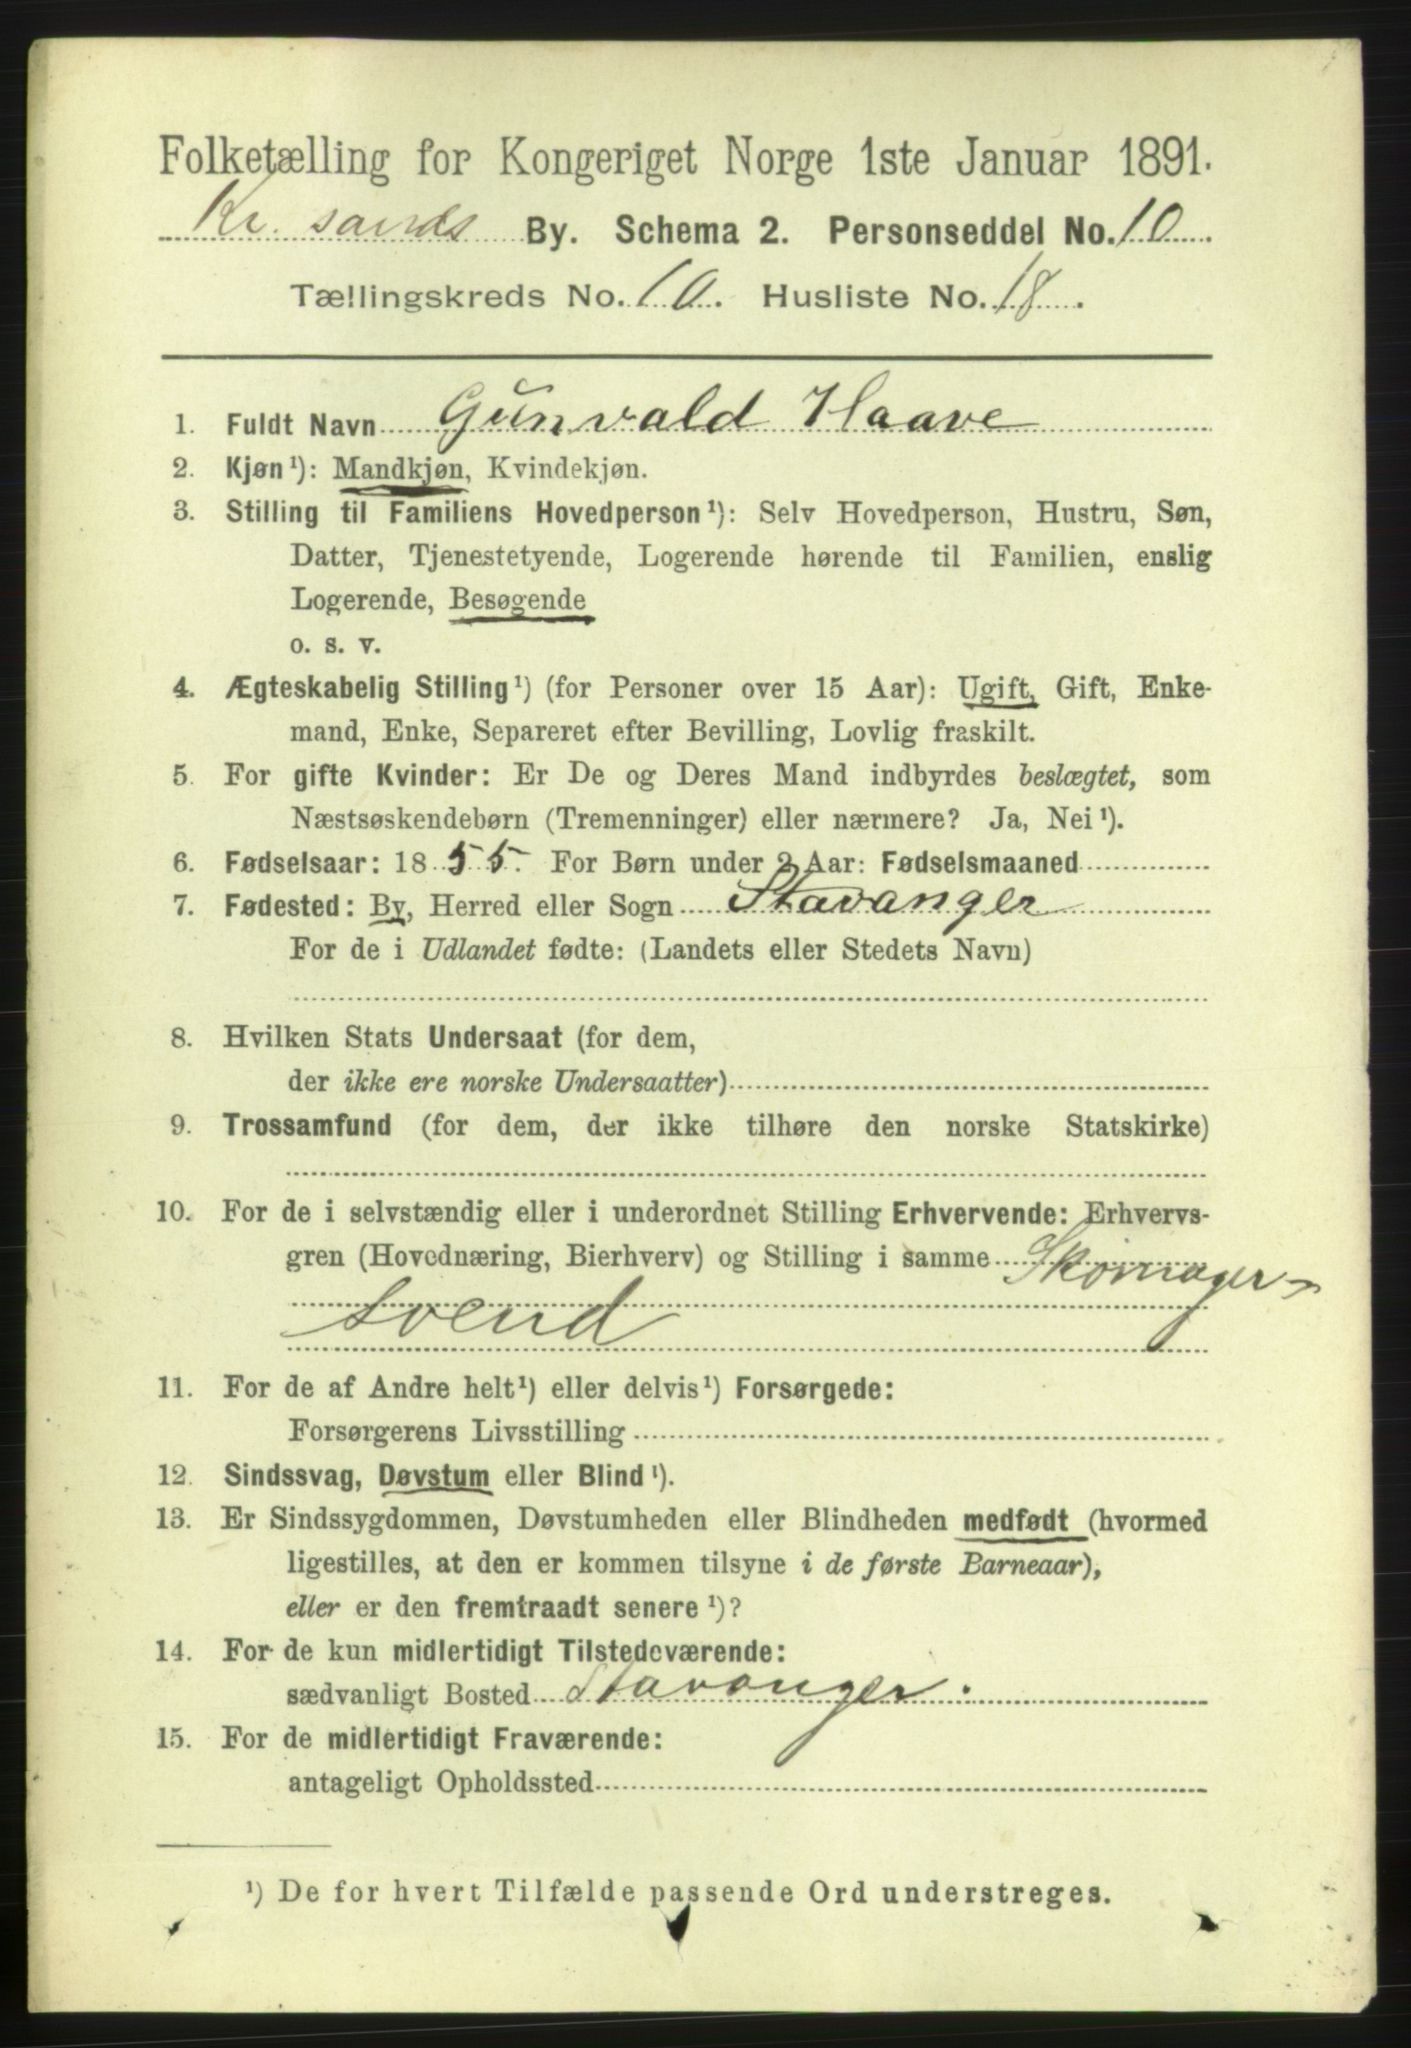 Folketælling for Kongeriget Norge 1ste Januar 1891.
Kr. sands By. Schema 2. Personseddel No. 10
Tællingskreds No. 10. Husliste No. 18.
1. Fuldt Navn Gunvald Haave
2. Kjøn¹): Mandkjøn, Kvindekjøn.
3. Stilling til Familiens Hovedperson¹): Selv Hovedperson, Hustru, Søn,
Datter, Tjenestetyende, Logerende hørende til Familien, enslig
Logerende, Besøgende
o. s. v.
4. Ægteskabelig Stilling¹) (for Personer over 15 Aar): Ugift, Gift, Enke-
mand, Enke, Separeret efter Bevilling, Lovlig fraskilt.
5. For gifte Kvinder: Er De og Deres Mand indbyrdes beslægtet, som
Næstsøskendebørn (Tremenninger) eller nærmere? Ja, Nei¹).
6. Fødselsaar: 1855. For Børn under 2 Aar: Fødselsmaaned
7. Fødested: By, Herred eller Sogn Stavanger
For de i Udlandet fødte: (Landets eller Stedets Navn)
8. Hvilken Stats Undersaat (for dem,
der ikke ere norske Undersaatter)
9. Trossamfund (for dem, der ikke tilhøre den norske Statskirke)
10. For de i selvstændig eller i underordnet Stilling Erhvervende: Erhvervs-
gren (Hovednæring, Bierhverv) og Stilling i samme Skomager-
svend
11. For de af Andre helt¹) eller delvis¹) Forsørgede:
Forsørgerens Livsstilling
12. Sindssvag, Døvstum eller Blind¹).
13. Er Sindssygdommen, Døvstumheden eller Blindheden medfødt (hvormed
ligestilles, at den er kommen tilsyne i de første Barneaar),
eller er den fremtraadt senere¹)?
14. For de kun midlertidigt Tilstedeværende:
sædvanligt Bosted Stavanger.
15. For de midlertidigt Fraværende:
antageligt Opholdssted
¹) De for hvert Tilfælde passende Ord understreges.